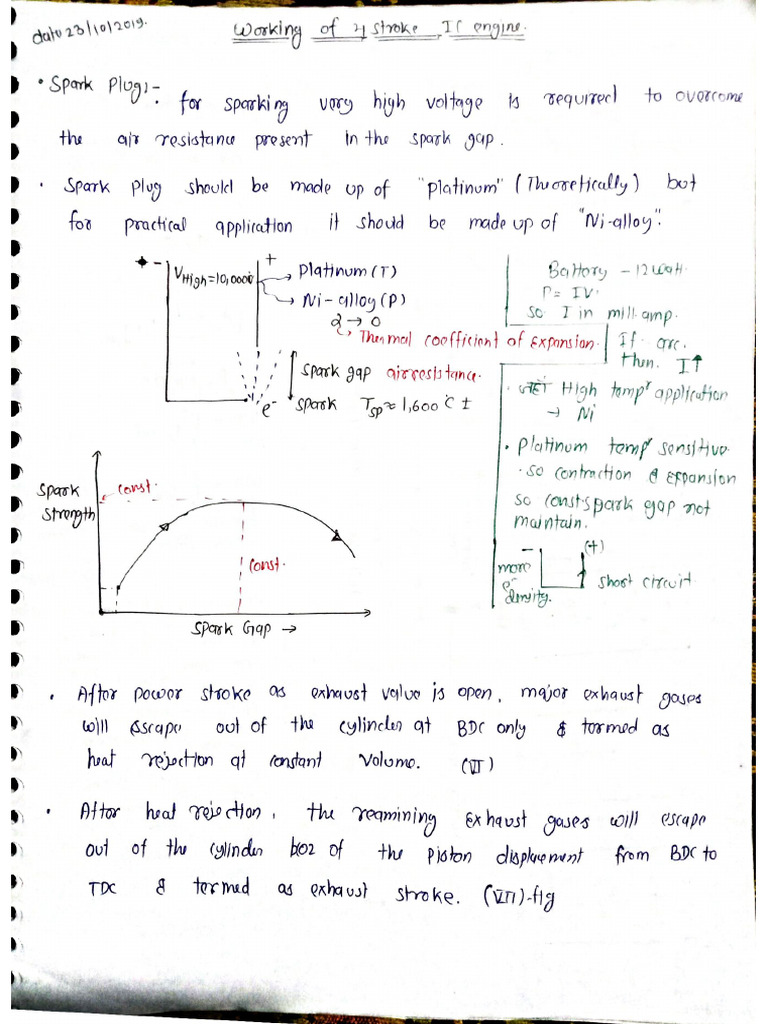 date 23/10/2019.
Working of 4 stroke IC engine.
• Spark Plug:-
for sparking very high voltage is required to overcome
the air resistance present in the spark gap.
• Spark plug should be made up of "platinum" (Theoretically) but
for practical application it should be made up of "Ni-alloy".
+ -
+
VHigh=10,000
→ Platinum (T)
→ Ni-alloy (P)
α → 0
↳ Thermal coefficient of Expansion.
Spark gap air resistance.
e-
Spark Tsp ≈ 1,600°C ±
Battery - 12 watt.
P = IV.
so I in mill.amp.
If arc.
then. I↑
High temp^r application
→ Ni
• Platinum temp^r sensitive.
• so contraction & Expansion
so const spark gap not
maintain.
- (+)
more
e-
density.
short circuit.
Spark
Strength
const.
const.
Spark Gap →
• After power stroke as exhaust value is open, major exhaust gases
will Escape out of the cylinder at BDC only & termed as
heat rejection at constant Volume. (VI)
• After heat rejection, the reamining Exhaust gases will escape
out of the cylinder boz of the piston displacment from BDC to
TDC & termed as exhaust stroke. (VII)-fig